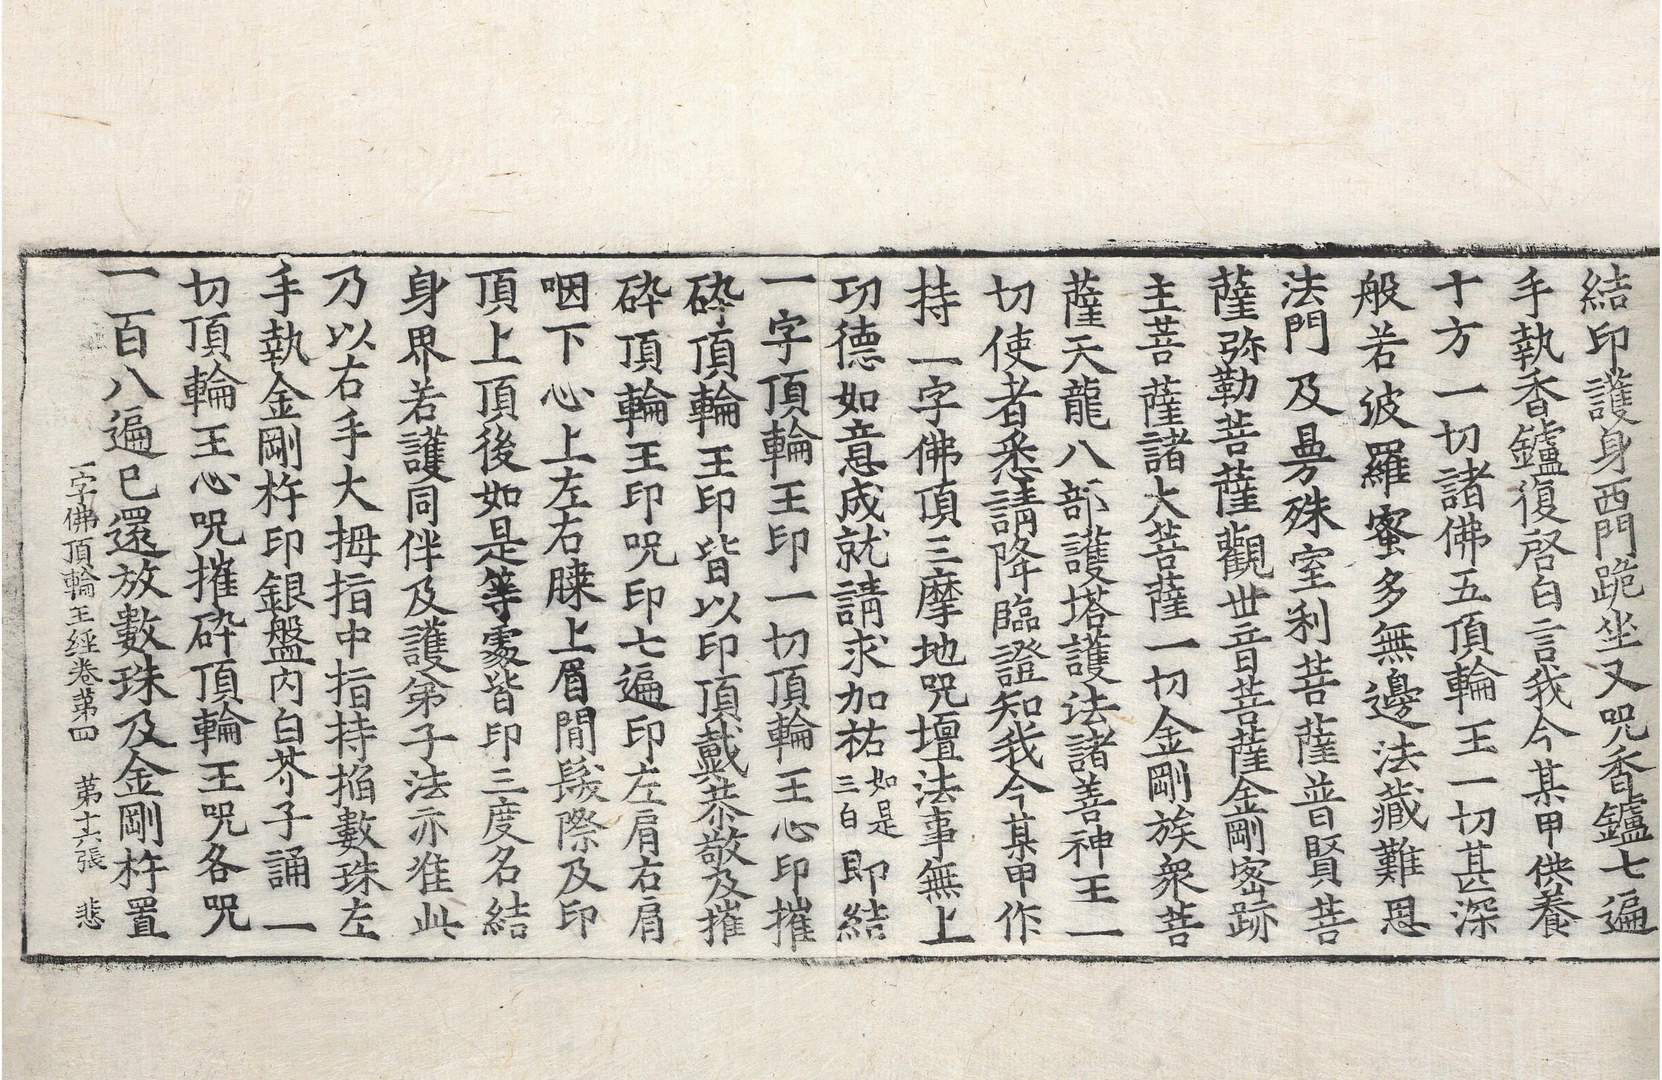 結印護身西門跪坐又呪香鑪七遍
手執香鑪復啓白言我今某甲供養
十方一切諸佛五頂輪王一切甚深
般若波羅蜜多無邊法藏難思
法門及曼殊室利菩薩普賢菩
薩弥勒菩薩觀世音菩薩金剛密跡
主菩薩諸大菩薩一切金剛族衆菩
薩天龍八部護塔護法諸善神王一
切使者悉請降臨證知我今某甲作
持一字佛頂三摩地呪壇法事無上
功德如意成就請求加祐如是三白即結
一字頂輪王印一切頂輪王心印摧
碎頂輪王印皆以印頂戴恭敬及摧
碎頂輪王印呪印七遍印左肩右肩
咽下心上左右膁上眉閒髮際及印
頂上頂後如是等處皆印三度名結
身界若護同伴及護弟子法亦准此
乃以右手大拇指中指持掐數珠左
手執金剛杵印銀盤內白芥子誦一
切頂輪王心呪摧碎頂輪王呪各呪
一百八遍已還放數珠及金剛杵置
一字佛頂輪王經卷第四 第十六張 悲